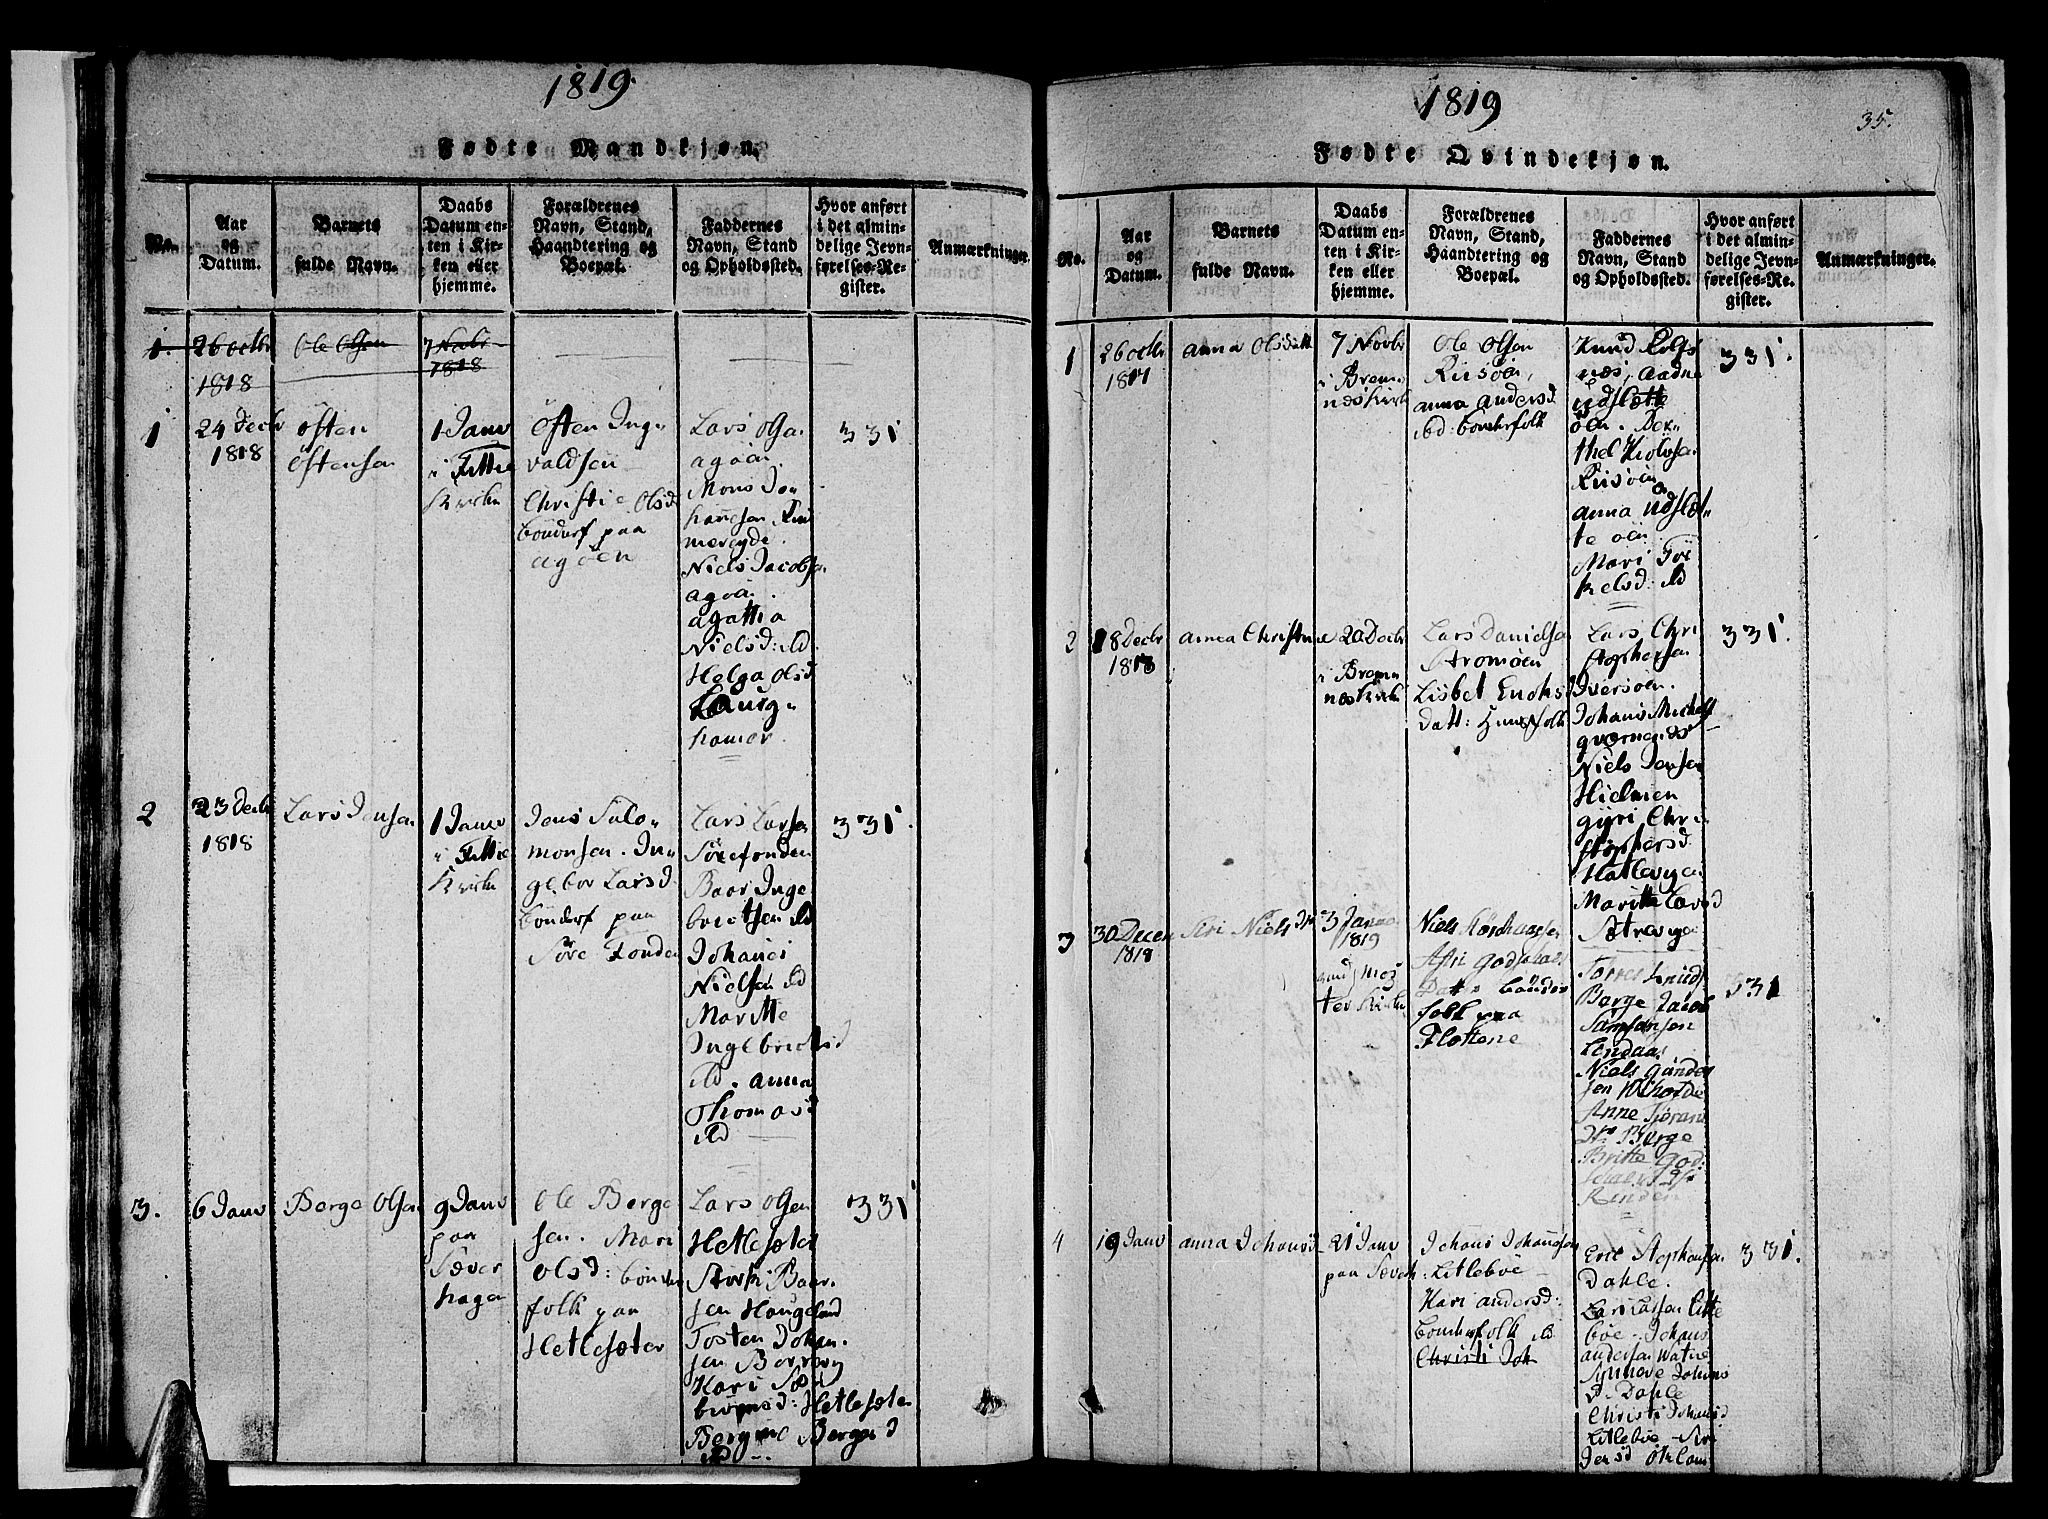 1819.
Fødte Mandkjøn.
No.
Aar
og
Datum.
Barnets
fulde Navn.
Daabs
Datum en-
ten i Kir-
ken eller
hjemme.
Forældrenes
Navn, Stand,
Haandtering og
Boepæl.
Faddernes
Navn, Stand
og Opholdssted.
Hvor anført
i det almin-
delige Jevn-
førelses-Re-
gister.
Anmærkninger.
1.
26 octbr
1818
Ole Olsen
7 Novbr
1818
1
24 Decbr
1818
Østen
Østensen
1 Janv
i Fittie
Kirke
Østen Ing-
valdsen
Christie Olsd
bønderf paa
agøen
Lars Olsen
agøen.
Mons Jo-
hansen
Niels Jacobsen
agøen.
agattia
Nielsd: ibd
Helga Olsd
hamer.
331
2
23 Decbr
1818
Lars Jensen
1 Janv
i Fittie
Kirke
Jens Salo-
monsen. In-
gebor Larsd.
bønderf paa
Søre Fonden
Lars Larsen
Sørefonden
Baar Inge
brictsen ibd
Johanes
Nielsen ibd
Maritte
Ingebrictsd
ibd. anna
Thomasd
ibd
331.
3.
6 Janv
Berge Olsen
9 Janv
paa
Sæver
hagen
Ole Berge
sen. Mari
Olsd: bønder
folk paa
Hetlesæter
Lars Olsen
Hetlesæter
Baar-
sen Haugeland
Tosten Johan-
sen
Kari
Hetlesæter
Bergd
ibd
331
1819
35.
Fødte Qvindekjøn.
No.
Aar
og
Datum.
Barnets
fulde Navn.
Daabs
Datum en-
ten i Kir-
ken eller
hjemme.
Forældrenes
Navn, Stand,
Haandtering og
Boepæl.
Faddernes
Navn, Stand
og Opholdssted.
Hvor anført
i det almin-
delige Jevn-
førelses-Re-
gister.
Anmærkninger.
1
26 octbr
anna Olsdatt
7 Novbr
i Brem
næs Kirk
Ole Olsen
Risøen,
anna Andersd
ibd: bønderfolk
Knud Rolfs
næs, Aadne
Udslætte
øen. Ber-
thel
Risøen
anna Udslæt-
te øen
Mari Tor
kelsd: ibd
331.
2
18 Decbr
1818
anna Christine
20 Decbr
i Brem
næs Kirk
Lars Danielsen
Stromøen
Lisbet Enoks
datt: Huusfolk
Lars Chri
stophersen
Iversøen.
Johanis
Niels Jensen
Hielmen
gyri Chri
stophersd
Hatlevigen
Maritte Larsd
331.
3
30 Decem
1818
Siri Niels Dr
3 Janua
1819
ter Kirke
Niels
Datter bønder
folk paa
Flottene
Knuds
Berge Jacob
Samsonsen
Lindaas
Niels
Anne
Dr Berge
Britte God
331
4
19 Janv
anna Johansd
21 Janv
paa Sæverh:
Johans Johansen
Litleboe
Kari andersd:
bønderfolk ib
Christi Joh
Eric Stephansen
Dahle.
Lars Larsen Litle
boe. Johans
andersen
Synnøve Johans
d. Dahle
Christi Johansd
Litleboe
331.